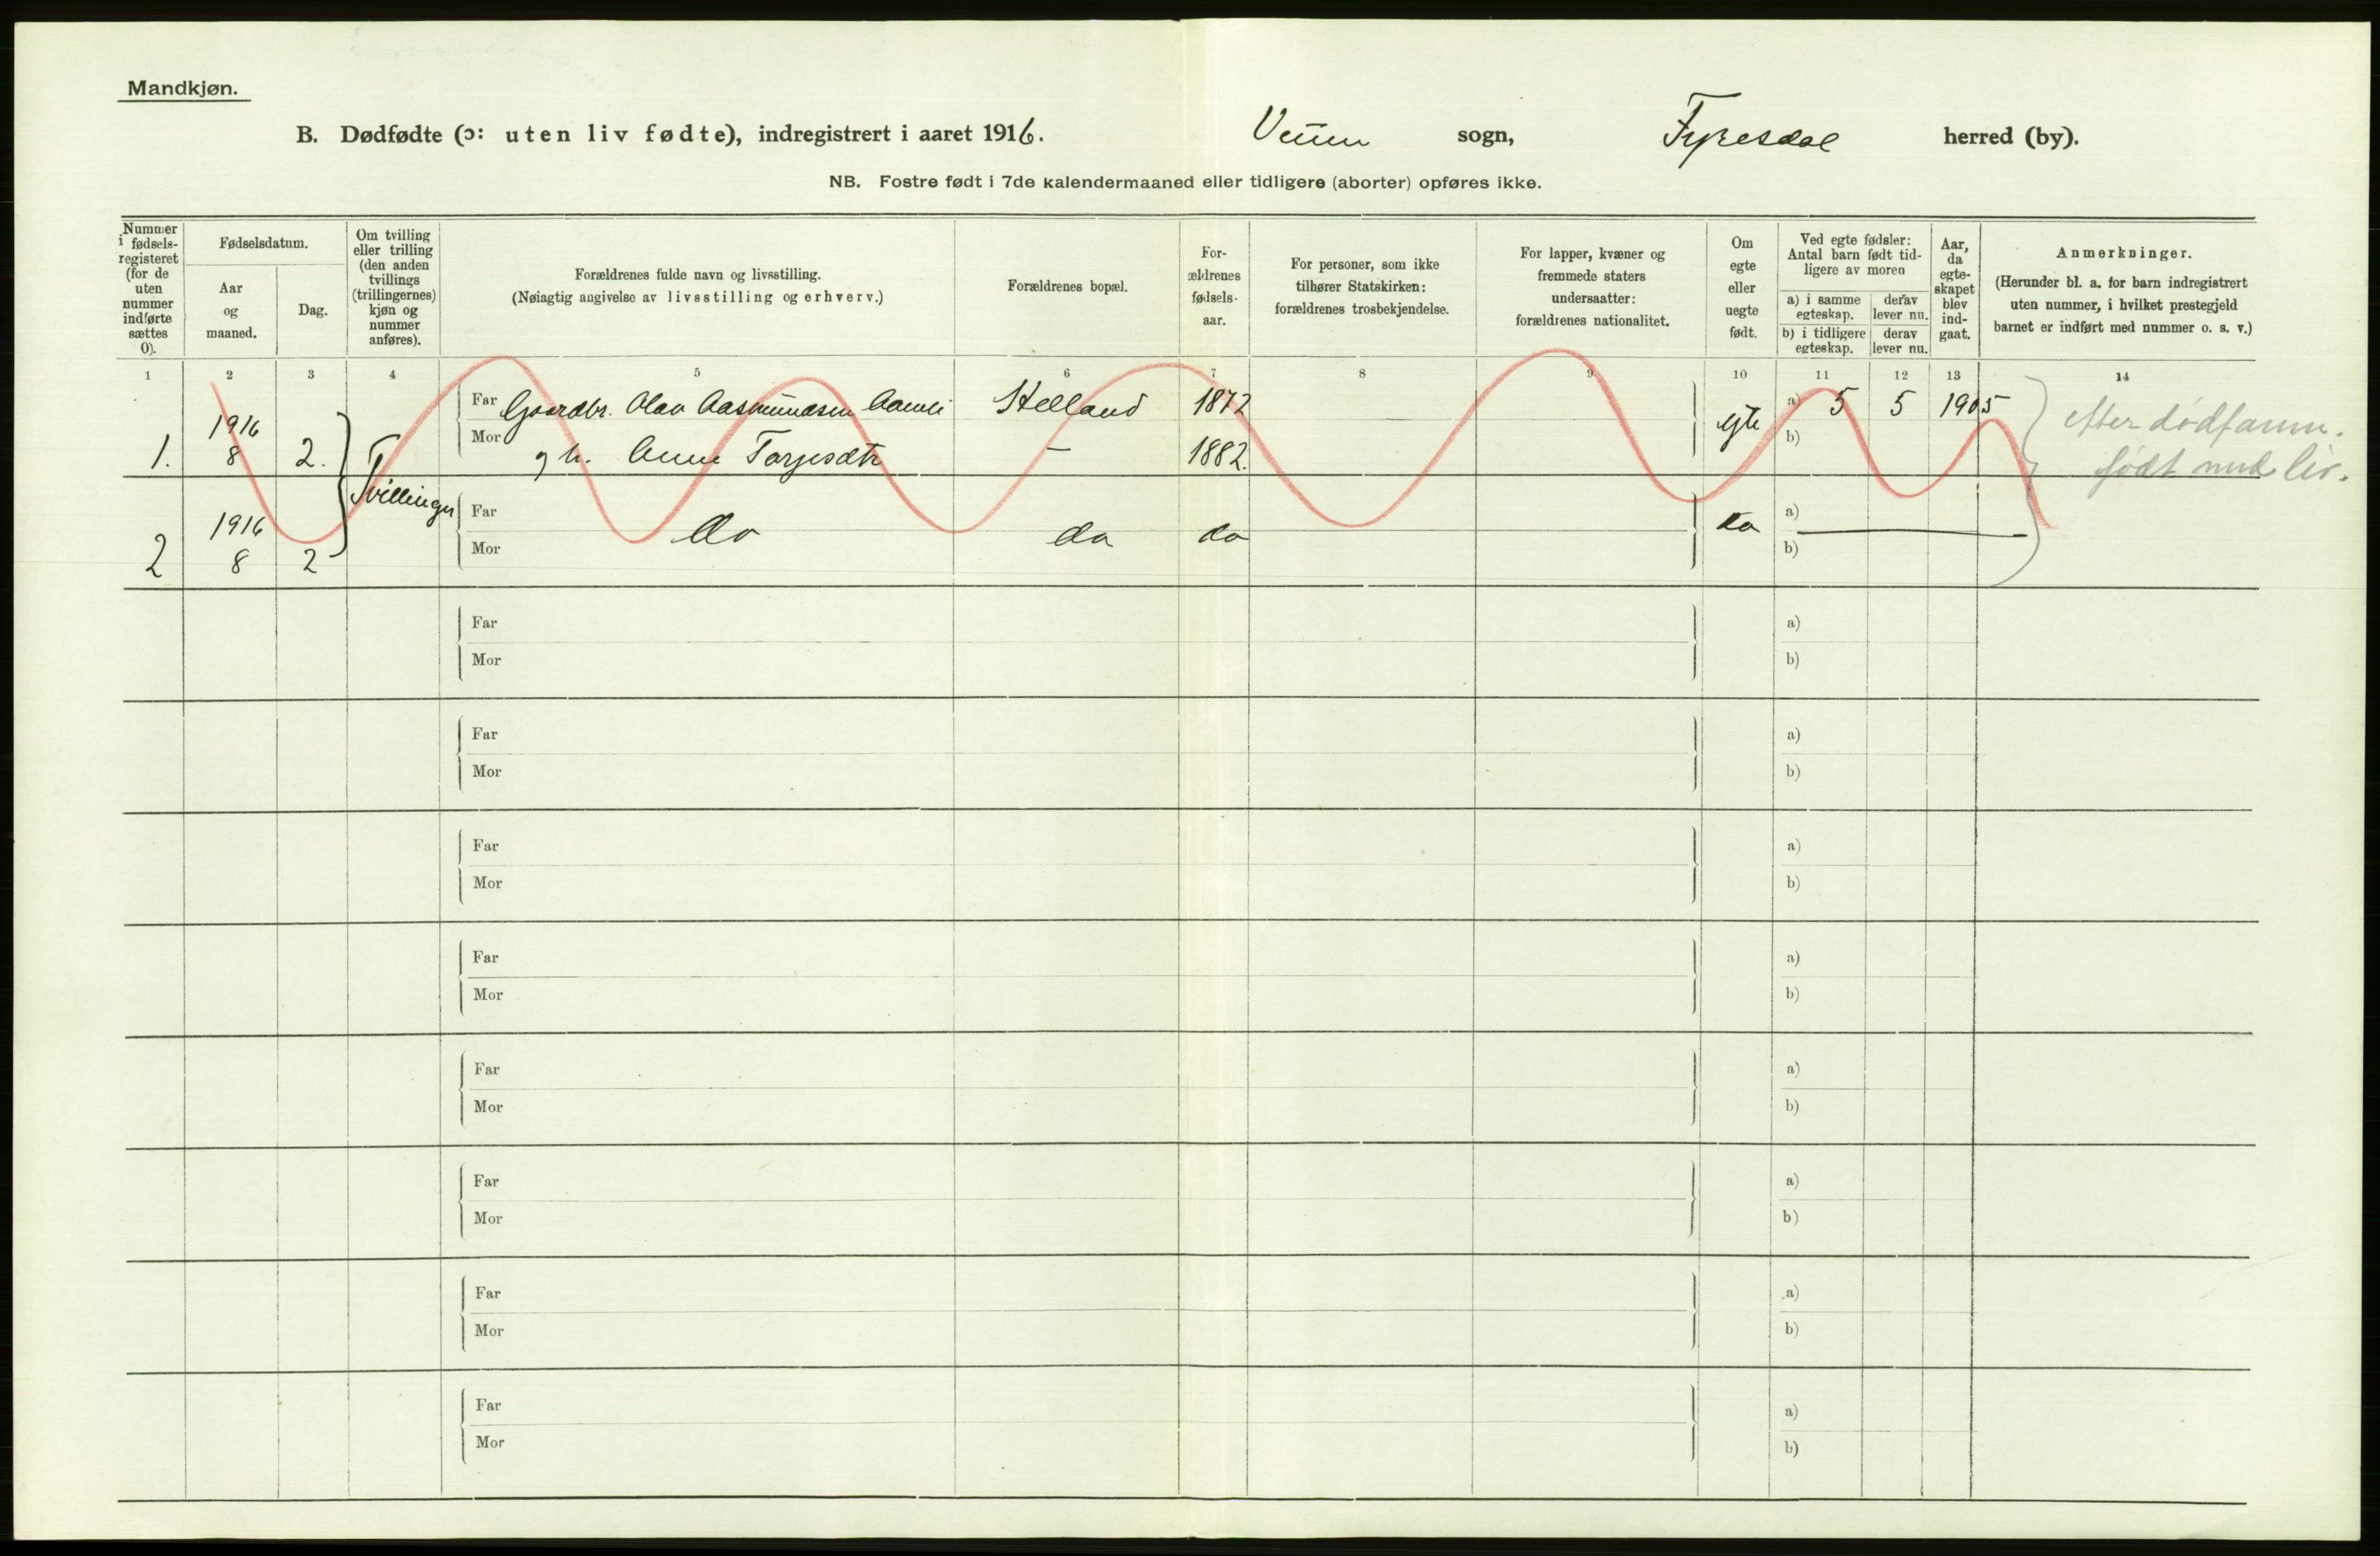 Mandkjøn.
B. Dødfødte (ɔ: uten liv fødte), indregistrert i aaret 1916. Veum sogn, Fyresdal herred (by).
NB. Fostre født i 7de kalendermaaned eller tidligere (aborter) opføres ikke.
Nummer i fødsels-registeret (for de uten nummer indførte sættes 0).
Fødselsdatum.
Aar og maaned.
Dag.
Om tvilling eller trilling (den anden tvillings (trillingernes) kjøn og nummer anføres).
Forældrenes fulde navn og livsstilling.
(Nøiagtig angivelse av livsstilling og erhverv.)
Forældrenes bopæl.
For-ældrenes fødsels-aar.
For personer, som ikke tilhører Statskirken: forældrenes trosbekjendelse.
For lapper, kvæner og fremmede staters undersaatter: forældrenes nationalitet.
Om egte eller uegte født.
Ved egte fødsler: Antal barn født tid-ligere av moren
a) i samme egteskap.
derav lever nu.
b) i tidligere egteskap.
derav lever nu.
Aar, da egte-skapet blev ind-gaat.
Anmerkninger.
(Herunder bl. a. for barn indregistrert uten nummer, i hvilket prestegjeld barnet er indført med nummer o. s. v.)
1 2 3 4 5 6 7 8 9 10 11 12 13 14
1. 1916 8 2. Tvillinger
Far Gaardbr. Olav Aasmundsen Aamli Helland 1872 egte a) 5 5 1905
Mor og h. Anne Torjesdtr — 1882. b)
efter dødfanm.
født med liv.
2 1916 8 2
Far Mor do do do do a) b)
Far a)
Mor b)
Far a)
Mor b)
Far a)
Mor b)
Far a)
Mor b)
Far a)
Mor b)
Far a)
Mor b)
Far a)
Mor b)
Far a)
Mor b)